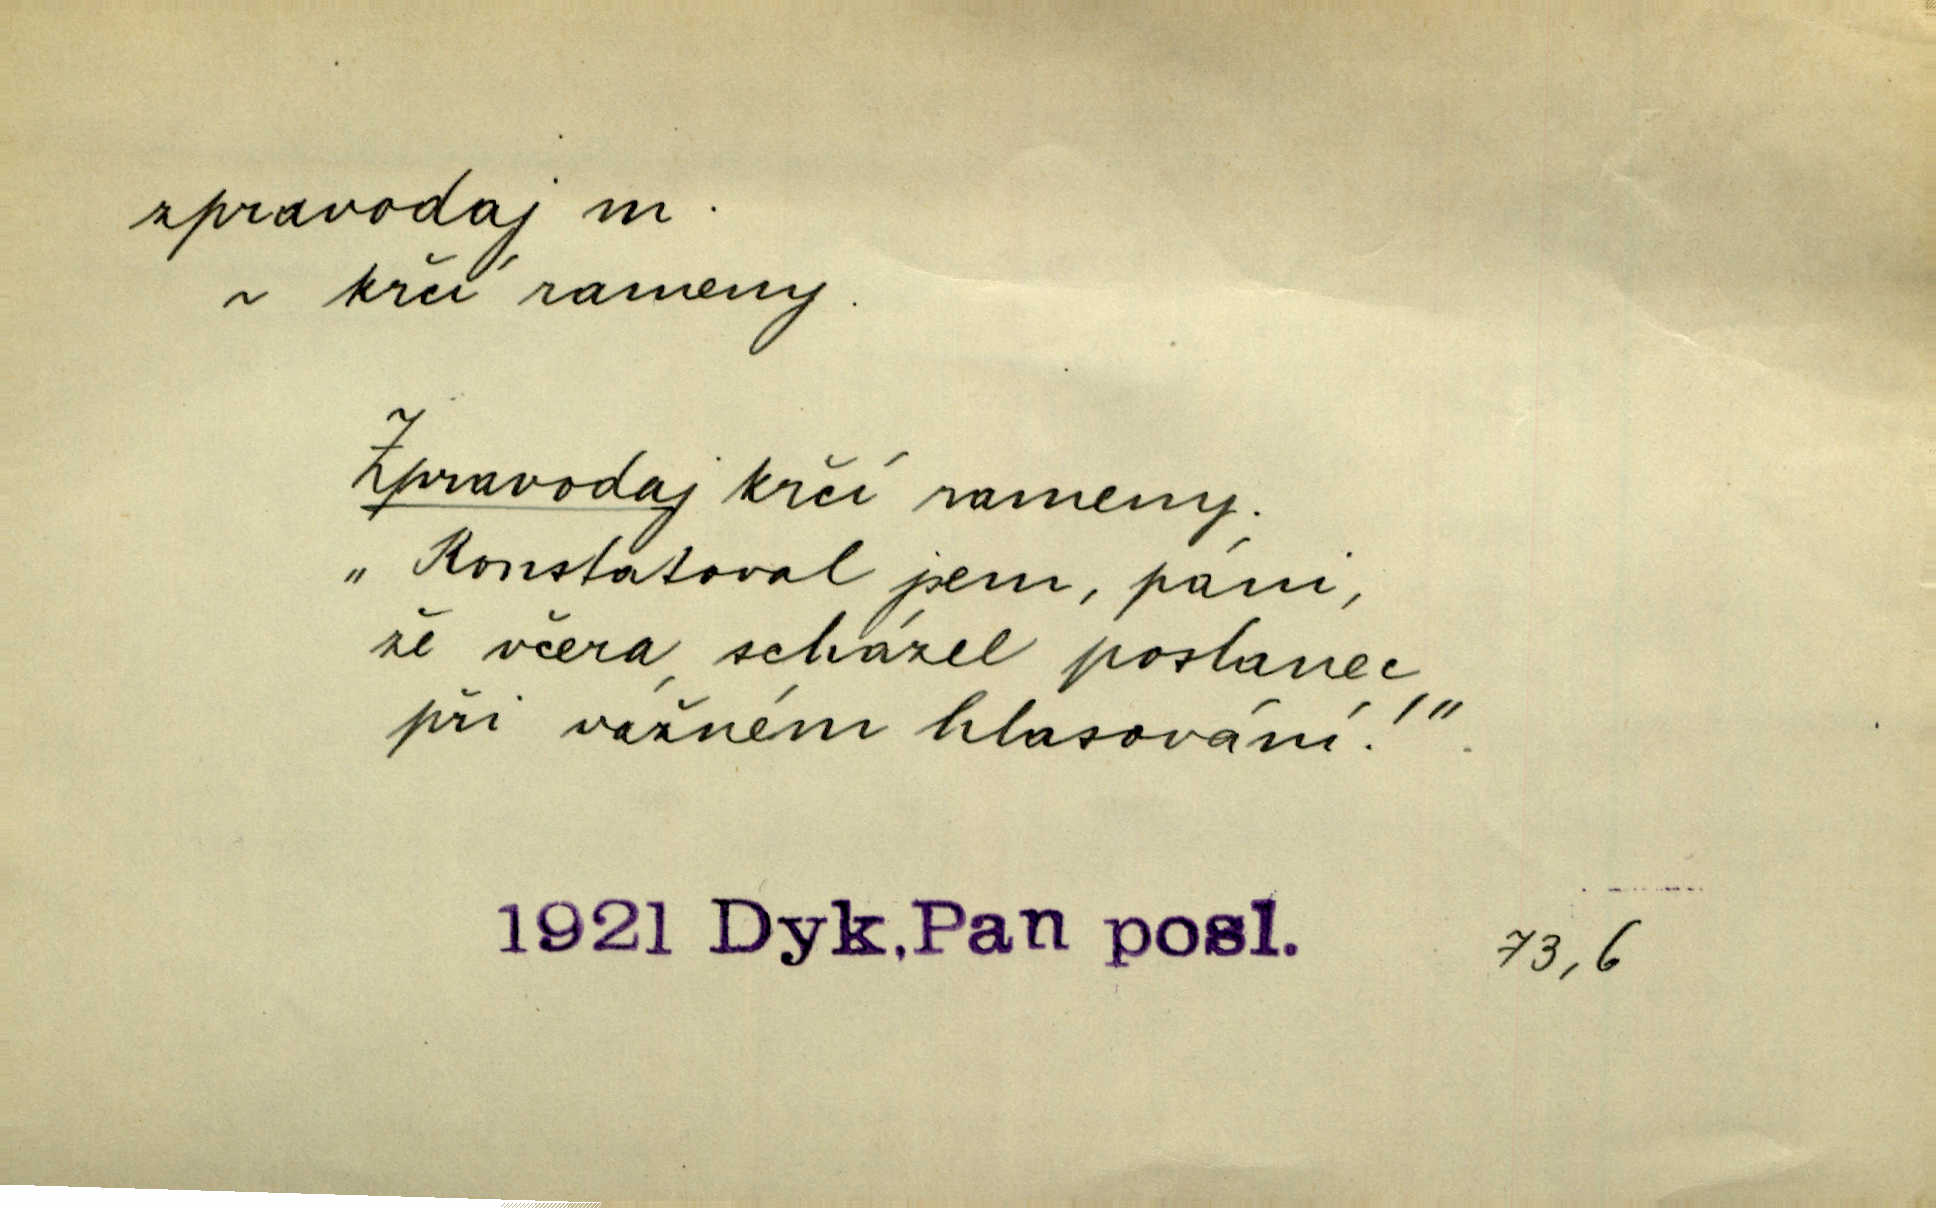 zpravodaj m.
~ krčí rameny.
Zpravodaj krčí rameny.
„Konstatoval jsem, páni,
že včera scházel poslanec
při vážném hlasování!"
1921 Dyk,Pan posl.
73,6